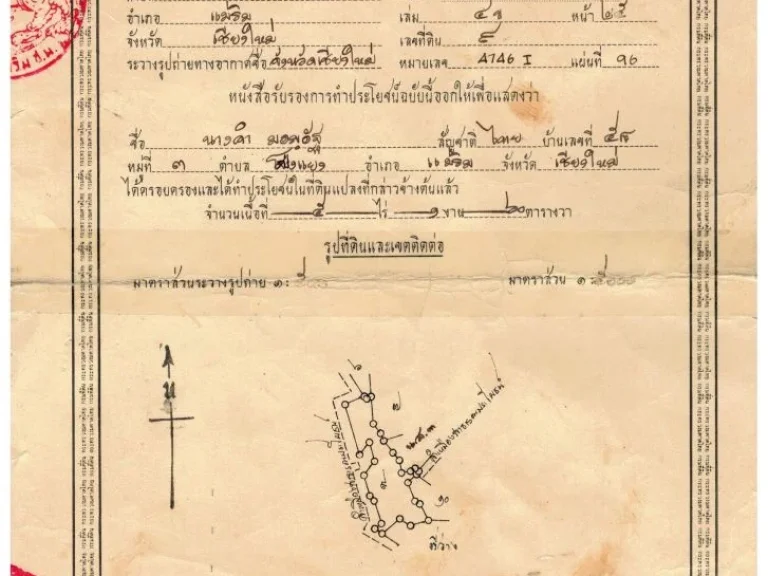 อำเภอ แม่ริม เล่ม หน้า ๒๕
จังหวัด เชียงใหม่ เลขที่ดิน ๕
ระวางรูปถ่ายทางอากาศชื่อ จังหวัดเชียงใหม่ หมายเลข 4746 I แผ่นที่ 96
หนังสือรับรองการทำประโยชน์ฉบับนี้ออกให้เพื่อแสดงว่า
ชื่อ นางคำ สัญชาติ ไทย บ้านเลขที่
หมู่ที่ ๓ ตำบล โป่งแยง อำเภอ แม่ริม จังหวัด เชียงใหม่
ได้ครอบครองและได้ทำประโยชน์ในที่ดินแปลงที่กล่าวข้างต้นแล้ว
จำนวนเนื้อที่ ๕ ไร่ ๑ งาน ๒๐ ตารางวา
รูปที่ดินและเขตติดต่อ
มาตราส่วนระวางรูปถ่าย ๑: มาตราส่วน ๑:
น
๖
๗
น.ส.๓
๑๐
ที่ว่าง